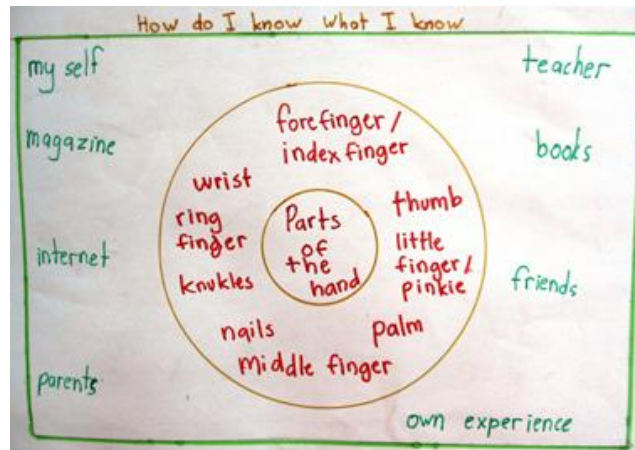 How do I know what I know
my self
teacher
magazine
books
internet
friends
parents
own experience
forefinger/
index finger
wrist
thumb
ring
finger
little
finger/
pinkie
knukles
nails
palm
middle finger
Parts
of
the
hand